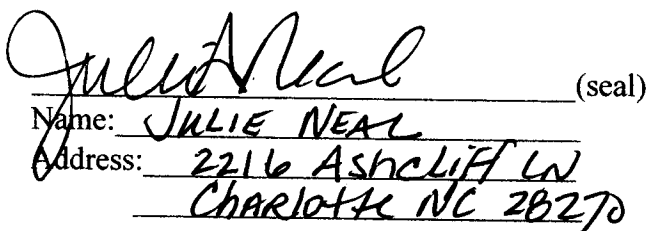 Julie A Neal (seal)
Name: JULIE NEAL
Address: 2216 AShcLiff LN
ChARlotte NC 28270